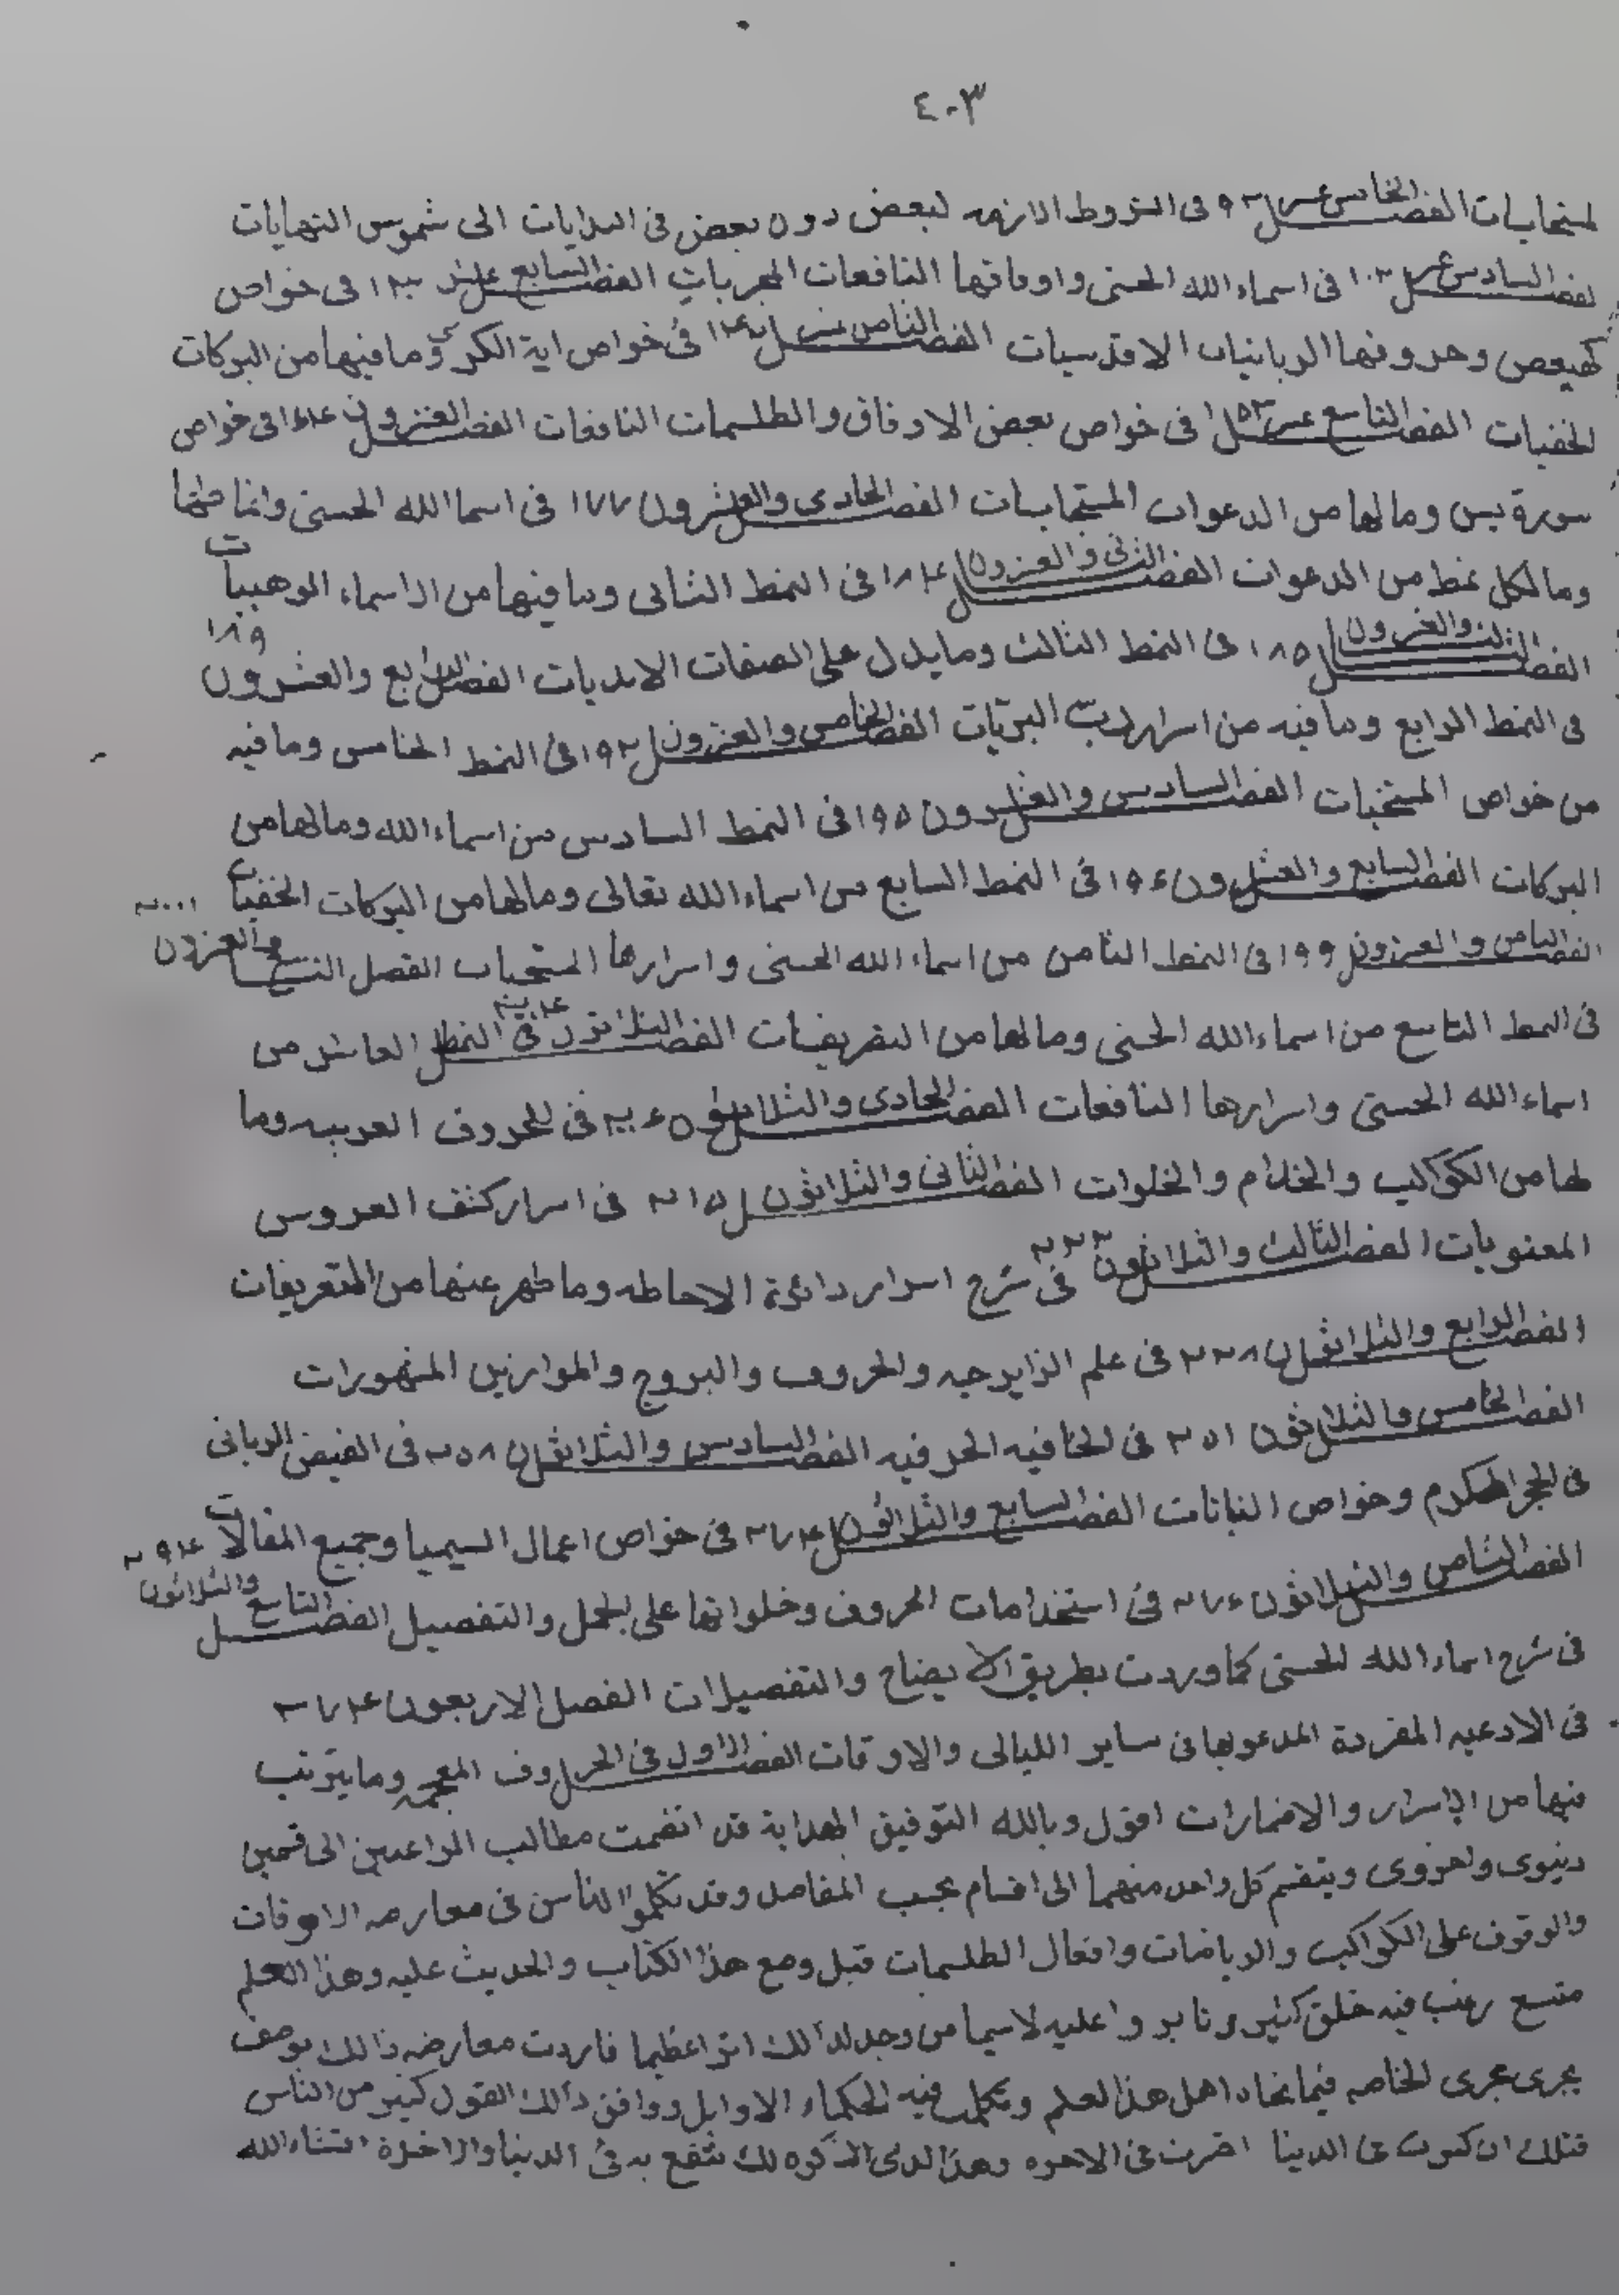 ٤٠٣
لمستجابات الفصل الخامس عشر ٩٣ فى الشروط الازمه لبعض دون بعض فى البدايات الى شموس النهايات
لفصل السادس عشر ١٠٣ فى اسماء الله الحسنى واوفاقها النافعات المجربات الفصل السابع عشر فى خواص
كهيعص وحروفها الربانيات الاقدسيات الفصل الثامن عشر فى خواص اية الكرسى وما فيها من البركات
الخفيات الفصل التاسع عشر فى خواص بعض الاوفاق والطلسمات النافعات الفصل العشرون فى خواص
سورة يس وما لها من الدعوات المستجابات الفصل الحادى والعشرون ١٧٧ فى اسما الله الحسنى وانماطها
وما لكل نمط من الدعوات الفصل الثانى والعشرون فى النمط الثانى وما فيها من الاسماء الوهبيات
الفصل الثالث والعشرون ١٨٥ فى النمط الثالث وما يدل على الصفات الابديات الفصل الرابع والعشرون
فى النمط الرابع وما فيه من اسرار رب البريات الفصل الخامس والعشرون ١٩٢ فى النمط الخامس وما فيه
من خواص المستخبات الفصل السادس والعشرون ١٩٥ فى النمط السادس من اسماء الله وما لها من
البركات الفصل السابع والعشرون فى النمط السابع من اسماء الله تعالى وما لها من البركات الخفيات
الفصل الثامن والعشرون ١٩٩ فى النمط الثامن من اسماء الله الحسنى واسرارها المستجبات الفصل التاسع والعشرون
فى النمط التاسع من اسماء الله الحسنى وما لها من التقريفات الفصل الثلاثون فى النمط العاشر من
اسماء الله الحسنى واسرارها النافعات الفصل الحادى والثلاثون فى الحروف العربيه وما
لها من الكواكب والخدام والخلوات الفصل الثانى والثلاثون ٢١٥ فى اسرار كشف العروس
المعنويات الفصل الثالث والثلاثون ٢٢٣ فى شرح اسرار دائرة الاحاطه وما ظهر عنها من التعريفات
الفصل الرابع والثلاثون فى علم الزايرجيه والحروف والبروج والموازين المشهورات
الفصل الخامس والثلاثون فى الخافيه الحرفيه الفصل السادس والثلاثون ٢٥٨ فى الفيض الربانى
فى الحجر المكرم وخواص النباتات الفصل السابع والثلاثون فى خواص اعمال السيميا وجميع المقالات
الفصل الثامن والثلاثون فى استخدامات الحروف وخلواتها على الجمل والتفصيل الفصل التاسع والثلاثون
فى شرح اسماء الله الحسنى كما وردت بطريق الايضاح والتفصيلات الفصل الاربعون
فى الادعيه المفردة المدعو بها فى ساير الليالى والاوقات الفصل الاول فى الحروف المعجمه وما يترتب
فيها من الاسرار والاضمارات اقول وبالله التوفيق الهداية قد انقسمت مطالب الراغبين الى قسمين
دنيوى واخروى وينقسم كل واحد منهما الى اقسام بحسب المقاصد وقد تكلموا الناس فى معارضه الاوقات
والوقوف على الكواكب والرياضات وافعال الطلسمات قبل وضع هذا الكتاب والحديث عليه وهذا العلم
متسع رغب فيه خلق كثير وثابروا عليه لاسيما من وجد لذالك اثرا عظيما فاردت معارضه ذالك بوصف
يجرى مجرى الخاصه فيما نحاه اهل هذا العلم وتكلمت فيه الحكماء الاوايل ووافق ذالك القول كثير من الناس
الدنيا فى الاخره وهذا الذى اذكره لك تنتفع به فى الدنيا والاخرة انشاء الله